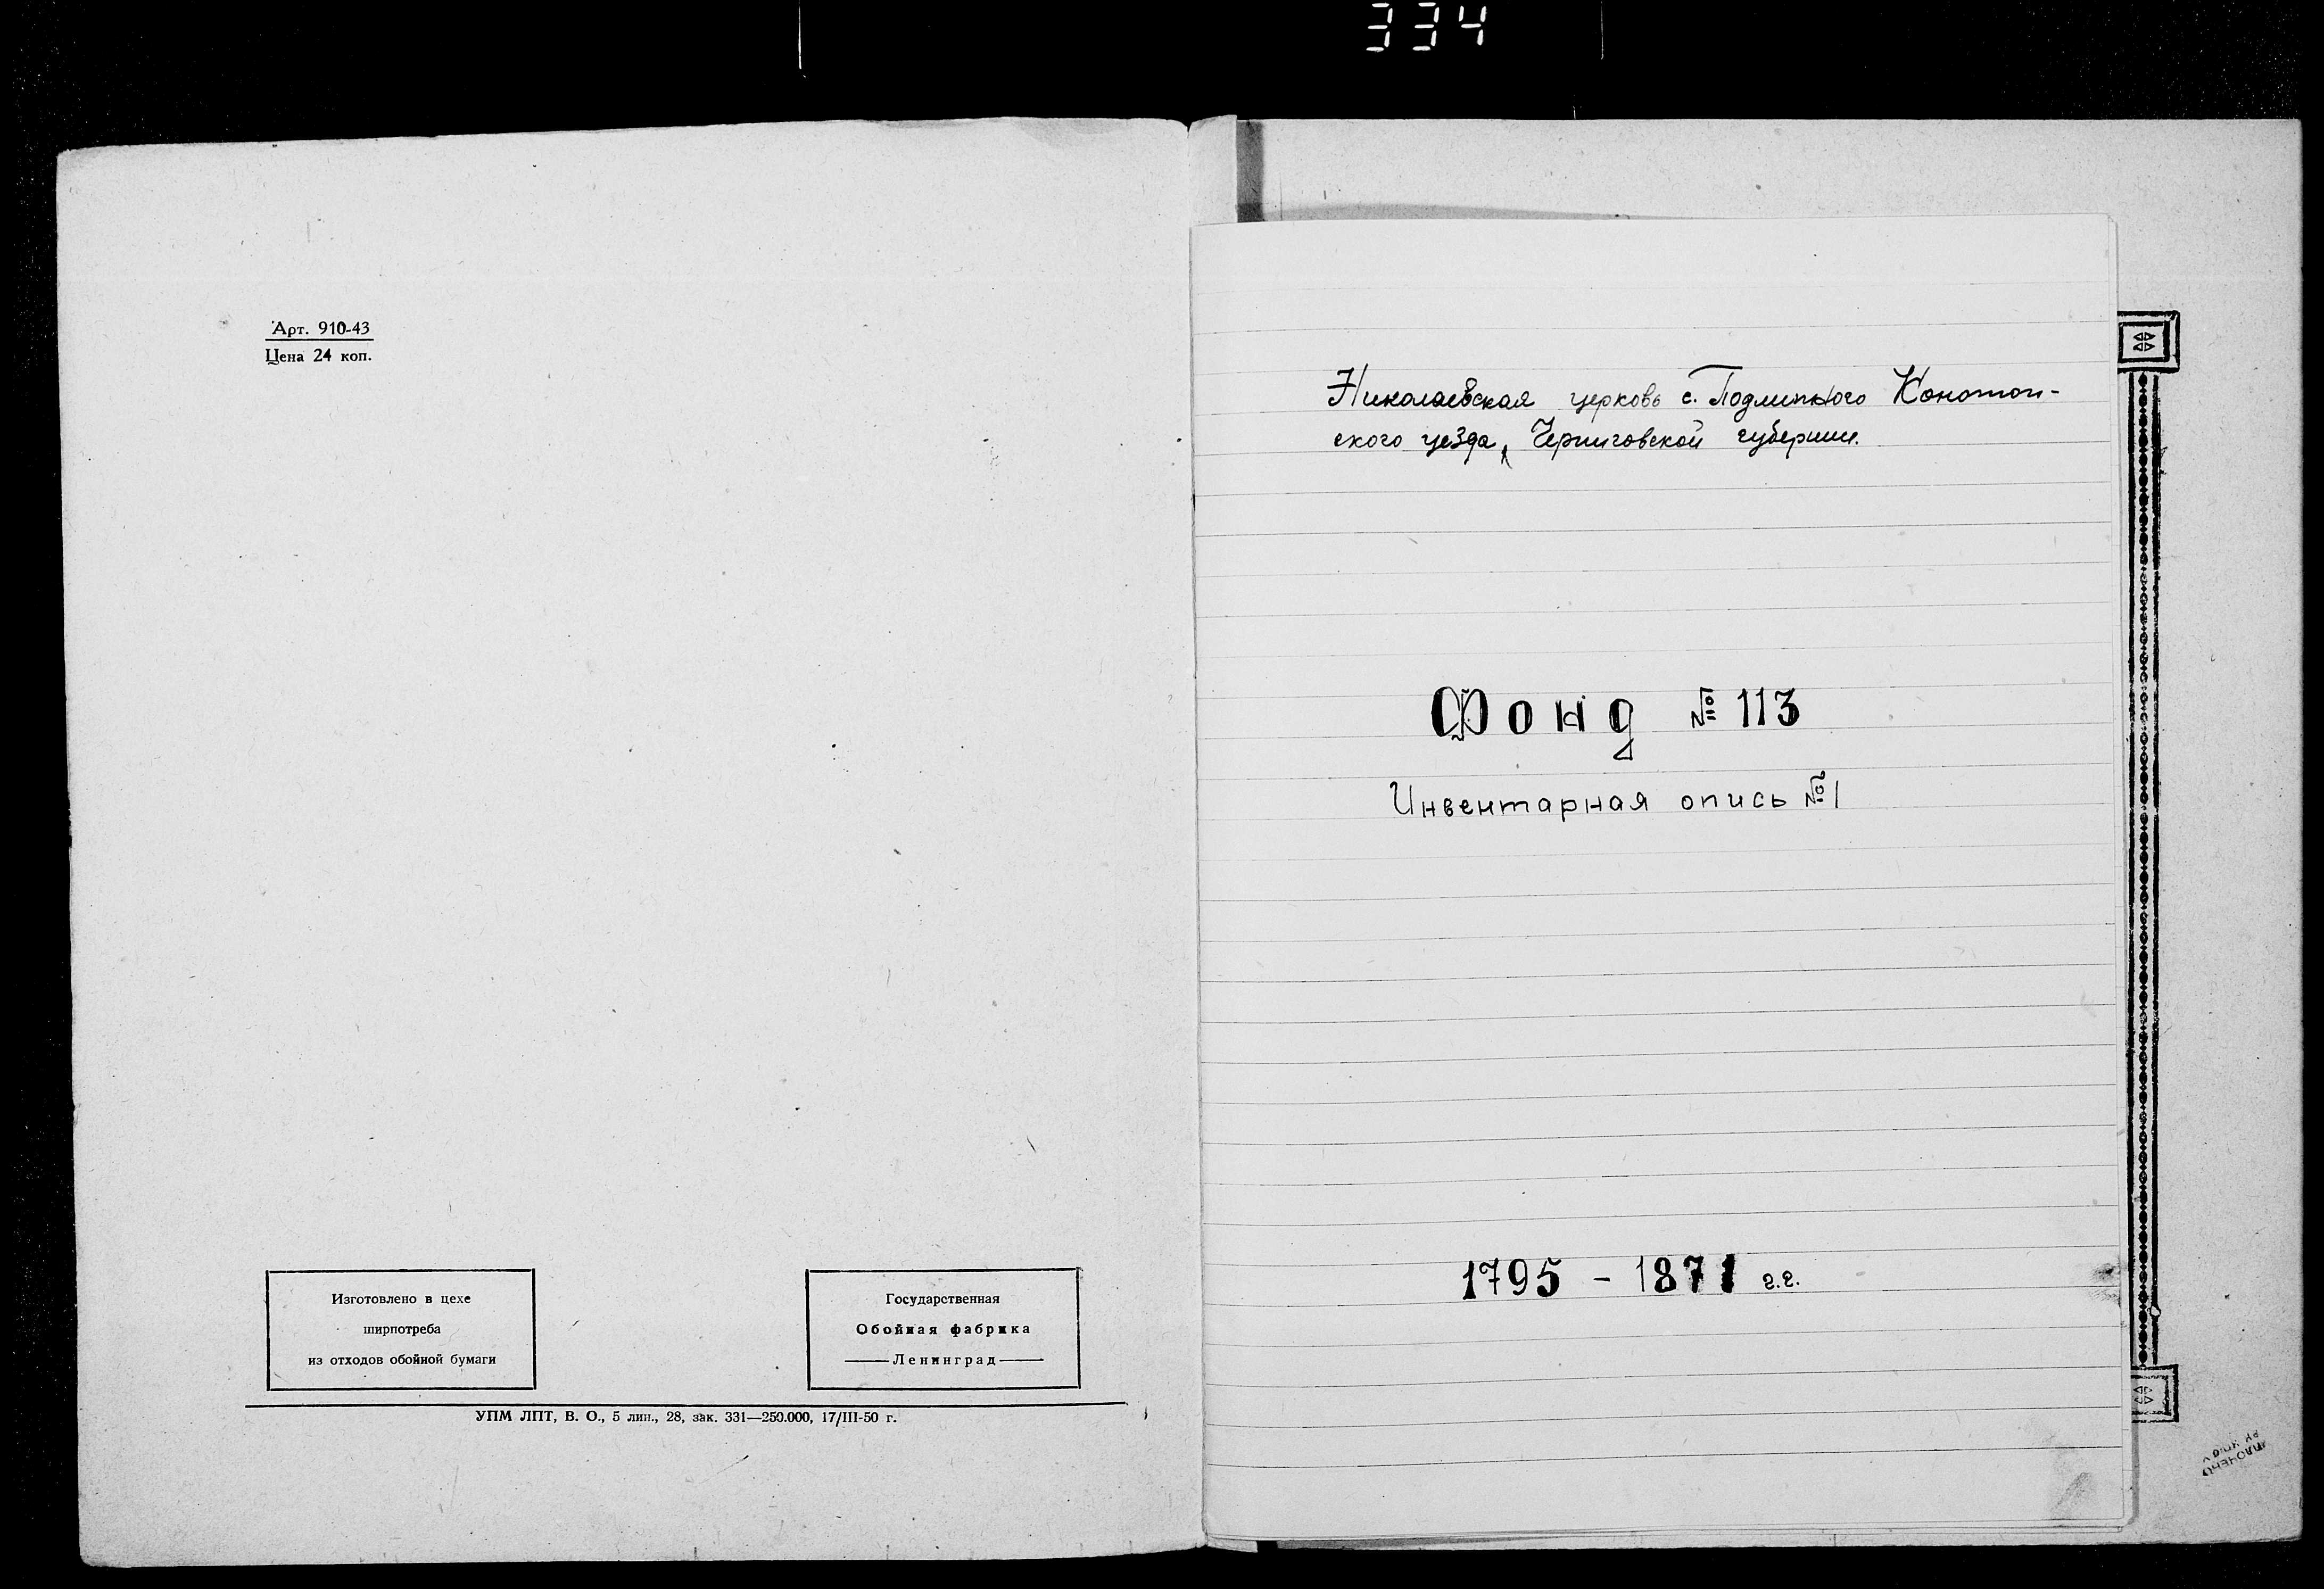 334
Арт. 910-43
Цена 24 коп.
Изготовлено в цехе
ширпотреба
из отходов обойной бумаги
Государственная
Обойная фабрика
Ленинград
УПМ ЛПТ, В. О., 5 лин., 28, зак. 331—250.000, 17/III-50 г.
Николаевская церковь с. Подлипного Конотоп-
ского уезда, Черниговской губернии.
Фонд № 113
Инвентарная опись № 1
1795 - 1871 г.г.